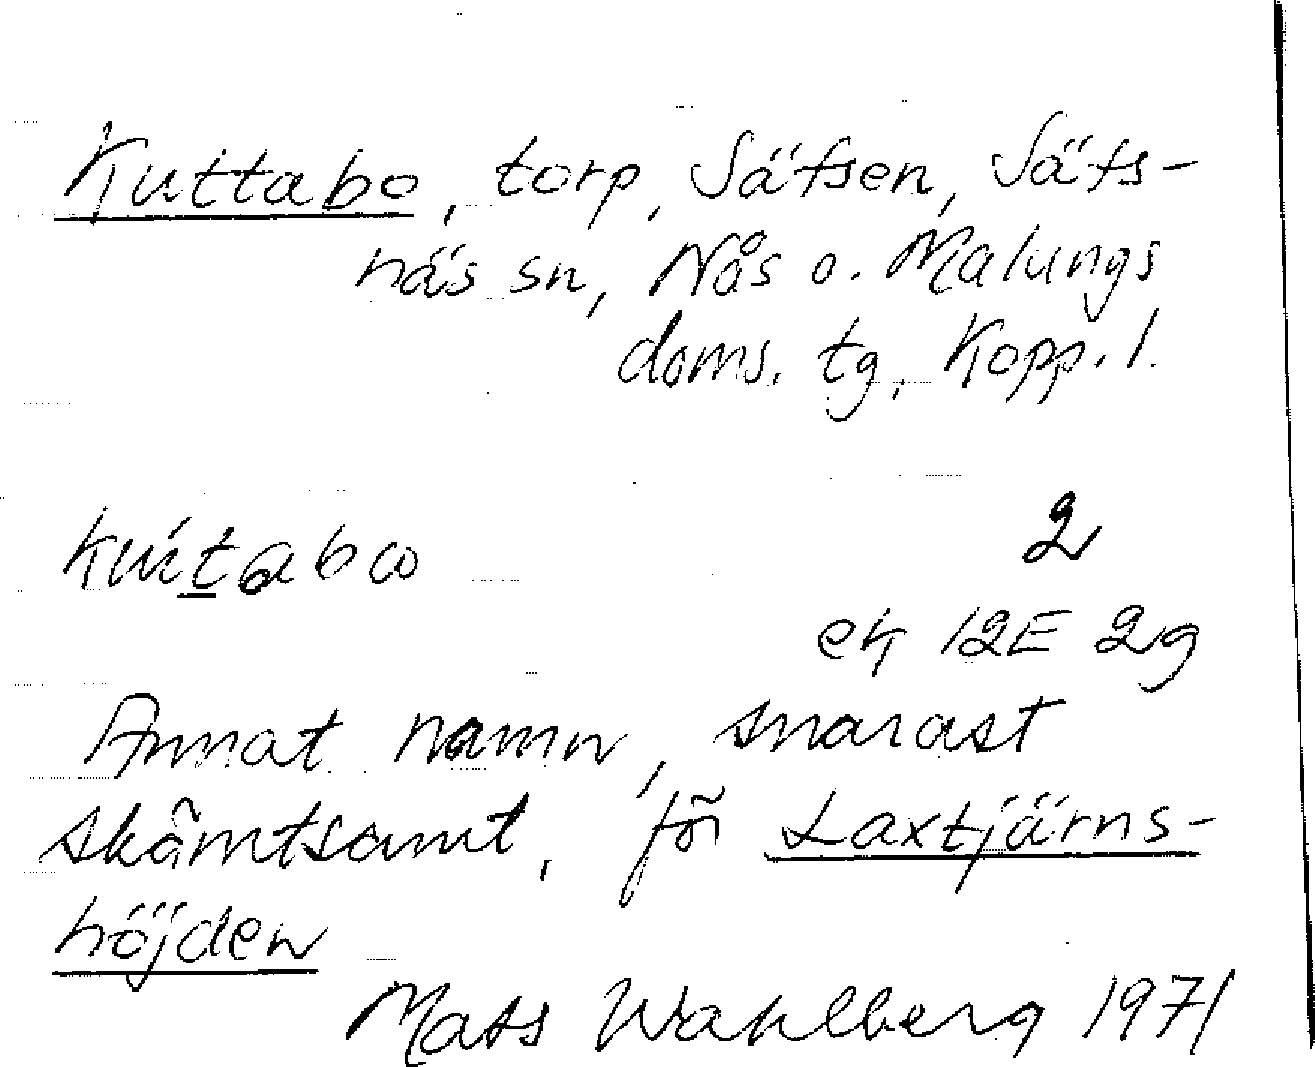 Kuttabo, torp, Säfsen, Säfs-
näs sn, Nås o. Malungs
doms. tg, Kopp. l.
2
ek 12E 2g
Annat namn, snarast
skämtsamt, för Laxtjärns-
höjden
Mats Wahlberg 1971